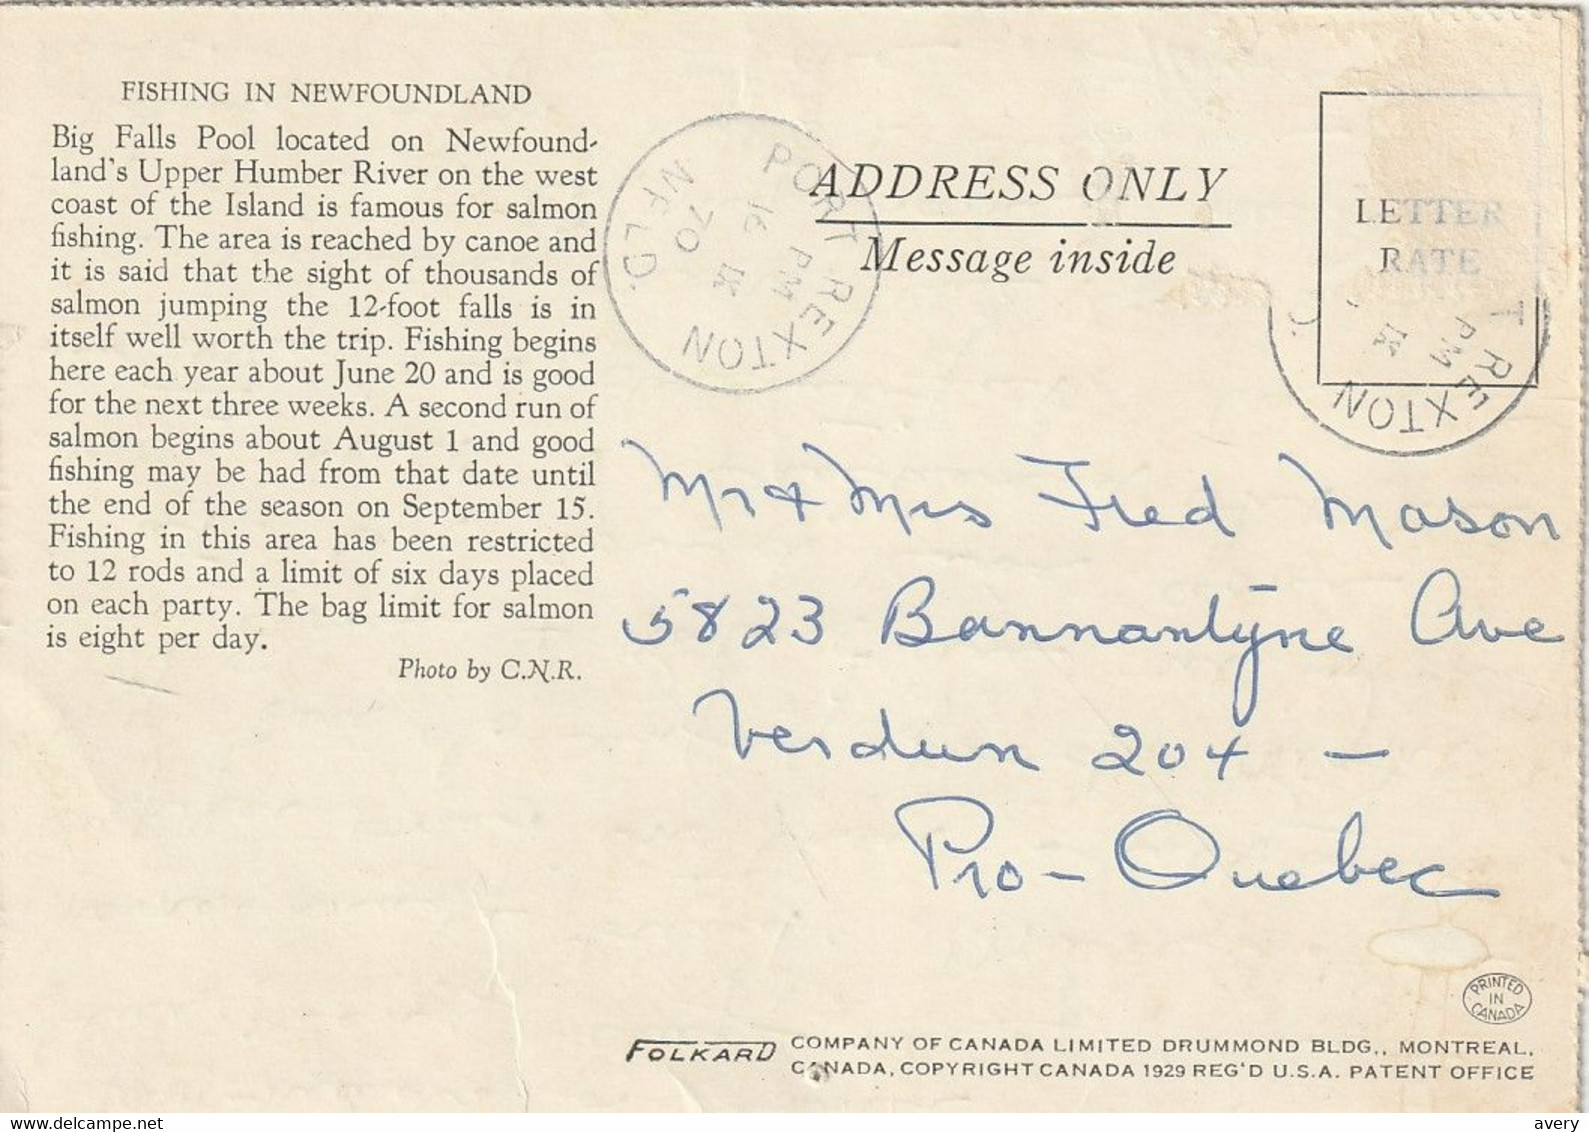 FISHING IN NEWFOUNDLAND
Big Falls Pool located on Newfound-
land's Upper Humber River on the west
coast of the Island is famous for salmon
fishing. The area is reached by canoe and
it is said that the sight of thousands of
salmon jumping the 12-foot falls is in
itself well worth the trip. Fishing begins
here each year about June 20 and is good
for the next three weeks. A second run of
salmon begins about August 1 and good
fishing may be had from that date until
the end of the season on September 15.
Fishing in this area has been restricted
to 12 rods and a limit of six days placed
on each party. The bag limit for salmon
is eight per day.
Photo by C.N.R.
PORT REXTON
NFLD.
PM
16
IX
70
ADDRESS ONLY
Message inside
LETTER
RATE
T REXTON
PM
IX
D.
Mr & Mrs Fred Mason
5823 Bannantyne Ave
Verdun 204 —
Pro - Quebec
PRINTED
IN
CANADA
FOLKARD COMPANY OF CANADA LIMITED DRUMMOND BLDG., MONTREAL,
CANADA, COPYRIGHT CANADA 1929 REG'D U.S.A. PATENT OFFICE
www.delcampe.net
avery